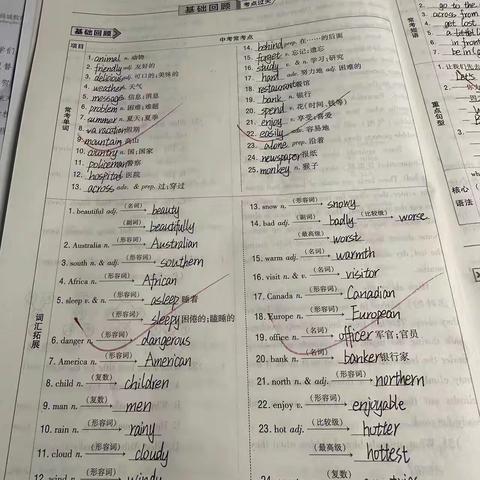 基础回顾 考点过关
基础回顾
项目
中考常考点
常考单词
1. animal n. 动物
2. friendly adj. 友好的
3. delicious adj. 可口的;美味的
4. weather 天气
5. message 信息;消息
6. problem n. 困难;难题
7. summer n. 夏天;夏季
8. vacation 假期
9. mountain 高山
10. country n. 国;国家
11. policeman 警察
12. hospital 医院
13. across adv. & prep. 过;穿过
14. behind prep. 在……的后面
15. forget v. 忘记;遗忘
16. study v. & n. 学习;研究
17. hard adv. 努力地 adj. 困难的
18. restaurant 餐馆
19. bank n. 银行
20. spend v. 花(时间、钱等)
21. enjoy v. 享受;喜爱
22. easily adv. 容易地
23. alone prep. 沿着
24. newspaper 报纸
25. monkey n. 猴子
词汇拓展
1. beautiful adj. (名词) beauty
(副词) beautifully
2. Australia n. (形容词) Australian
3. south n. & adj. (形容词) southern
4. Africa n. (形容词) African
5. sleep v. & n. (形容词) asleep 睡着
(形容词) sleepy 困倦的;瞌睡的
6. danger n. (形容词) dangerous
7. America n. (形容词) American
8. child n. (复数) children
9. man n. (复数) men
10. rain n. (形容词) rainy
11. cloud n. (形容词) cloudy
12. wind n. (形容词) windy
13. snow n. (形容词) snowy
14. bad adj. (副词) badly (比较级) worse
(最高级) worst
15. warm adj. (名词) warmth
16. visit n. & v. (名词) visitor
17. Canada n. (形容词) Canadian
18. Europe n. (形容词) European
19. office n. (名词) officer 军官;官员
20. bank n. (名词) banker 银行家
21. north n. & adj. (形容词) northern
22. enjoy v. (形容词) enjoyable
23. hot adj. (比较级) hotter
(最高级) hottest
(复数)
常考短语
2. go to the
3. across from
4. get lost
5. a little
6. in front
7. be in
重点句型
1. 让我们先去
Let's
核心
语法